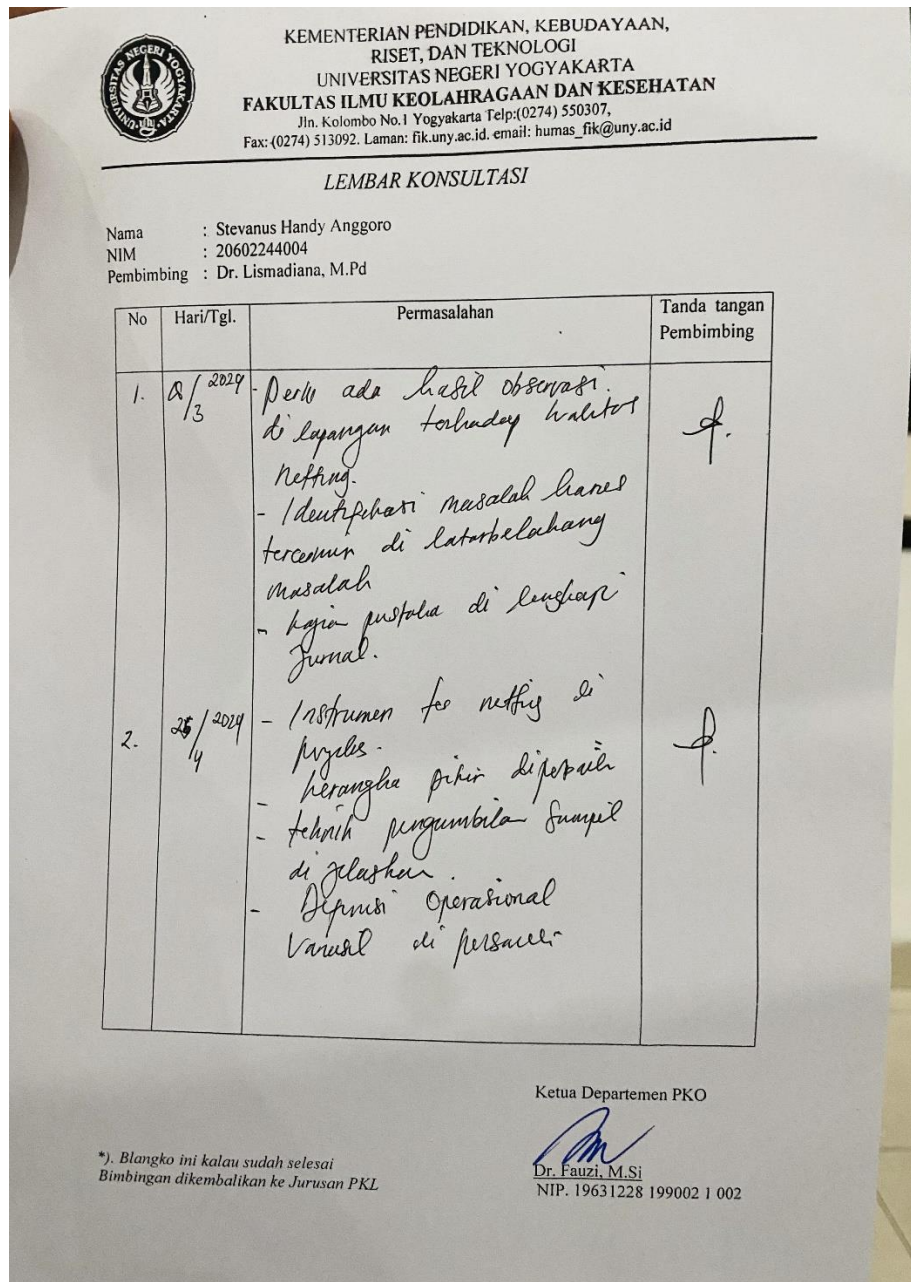 KEMENTERIAN PENDIDIKAN, KEBUDAYAAN,
RISET, DAN TEKNOLOGI
UNIVERSITAS NEGERI YOGYAKARTA
FAKULTAS ILMU KEOLAHRAGAAN DAN KESEHATAN
Jln. Kolombo No.1 Yogyakarta Telp:(0274) 550307,
Fax: (0274) 513092. Laman: fik.uny.ac.id. email: humas_fik@uny.ac.id
UNIVERSITAS NEGERI YOGYAKARTA
LEMBAR KONSULTASI
Nama : Stevanus Handy Anggoro
NIM : 20602244004
Pembimbing : Dr. Lismadiana, M.Pd
No Hari/Tgl. Permasalahan Tanda tangan
Pembimbing
1. /3 2024 - Perlu ada hasil observasi
di lapangan terhadap kualitas
netting.
- Identifikasi masalah harus
tercermin di latarbelakang
masalah
- kajian pustaka di lengkapi
Jurnal.
2. /4 2024 - Instrumen tes netting di
- kerangka pikir
- teknik pengambilan sampel
di jelaskan.
- Definisi Operasional
Variabel di
Ketua Departemen PKO
*). Blangko ini kalau sudah selesai
Bimbingan dikembalikan ke Jurusan PKL
Dr. Fauzi, M.Si
NIP. 19631228 199002 1 002